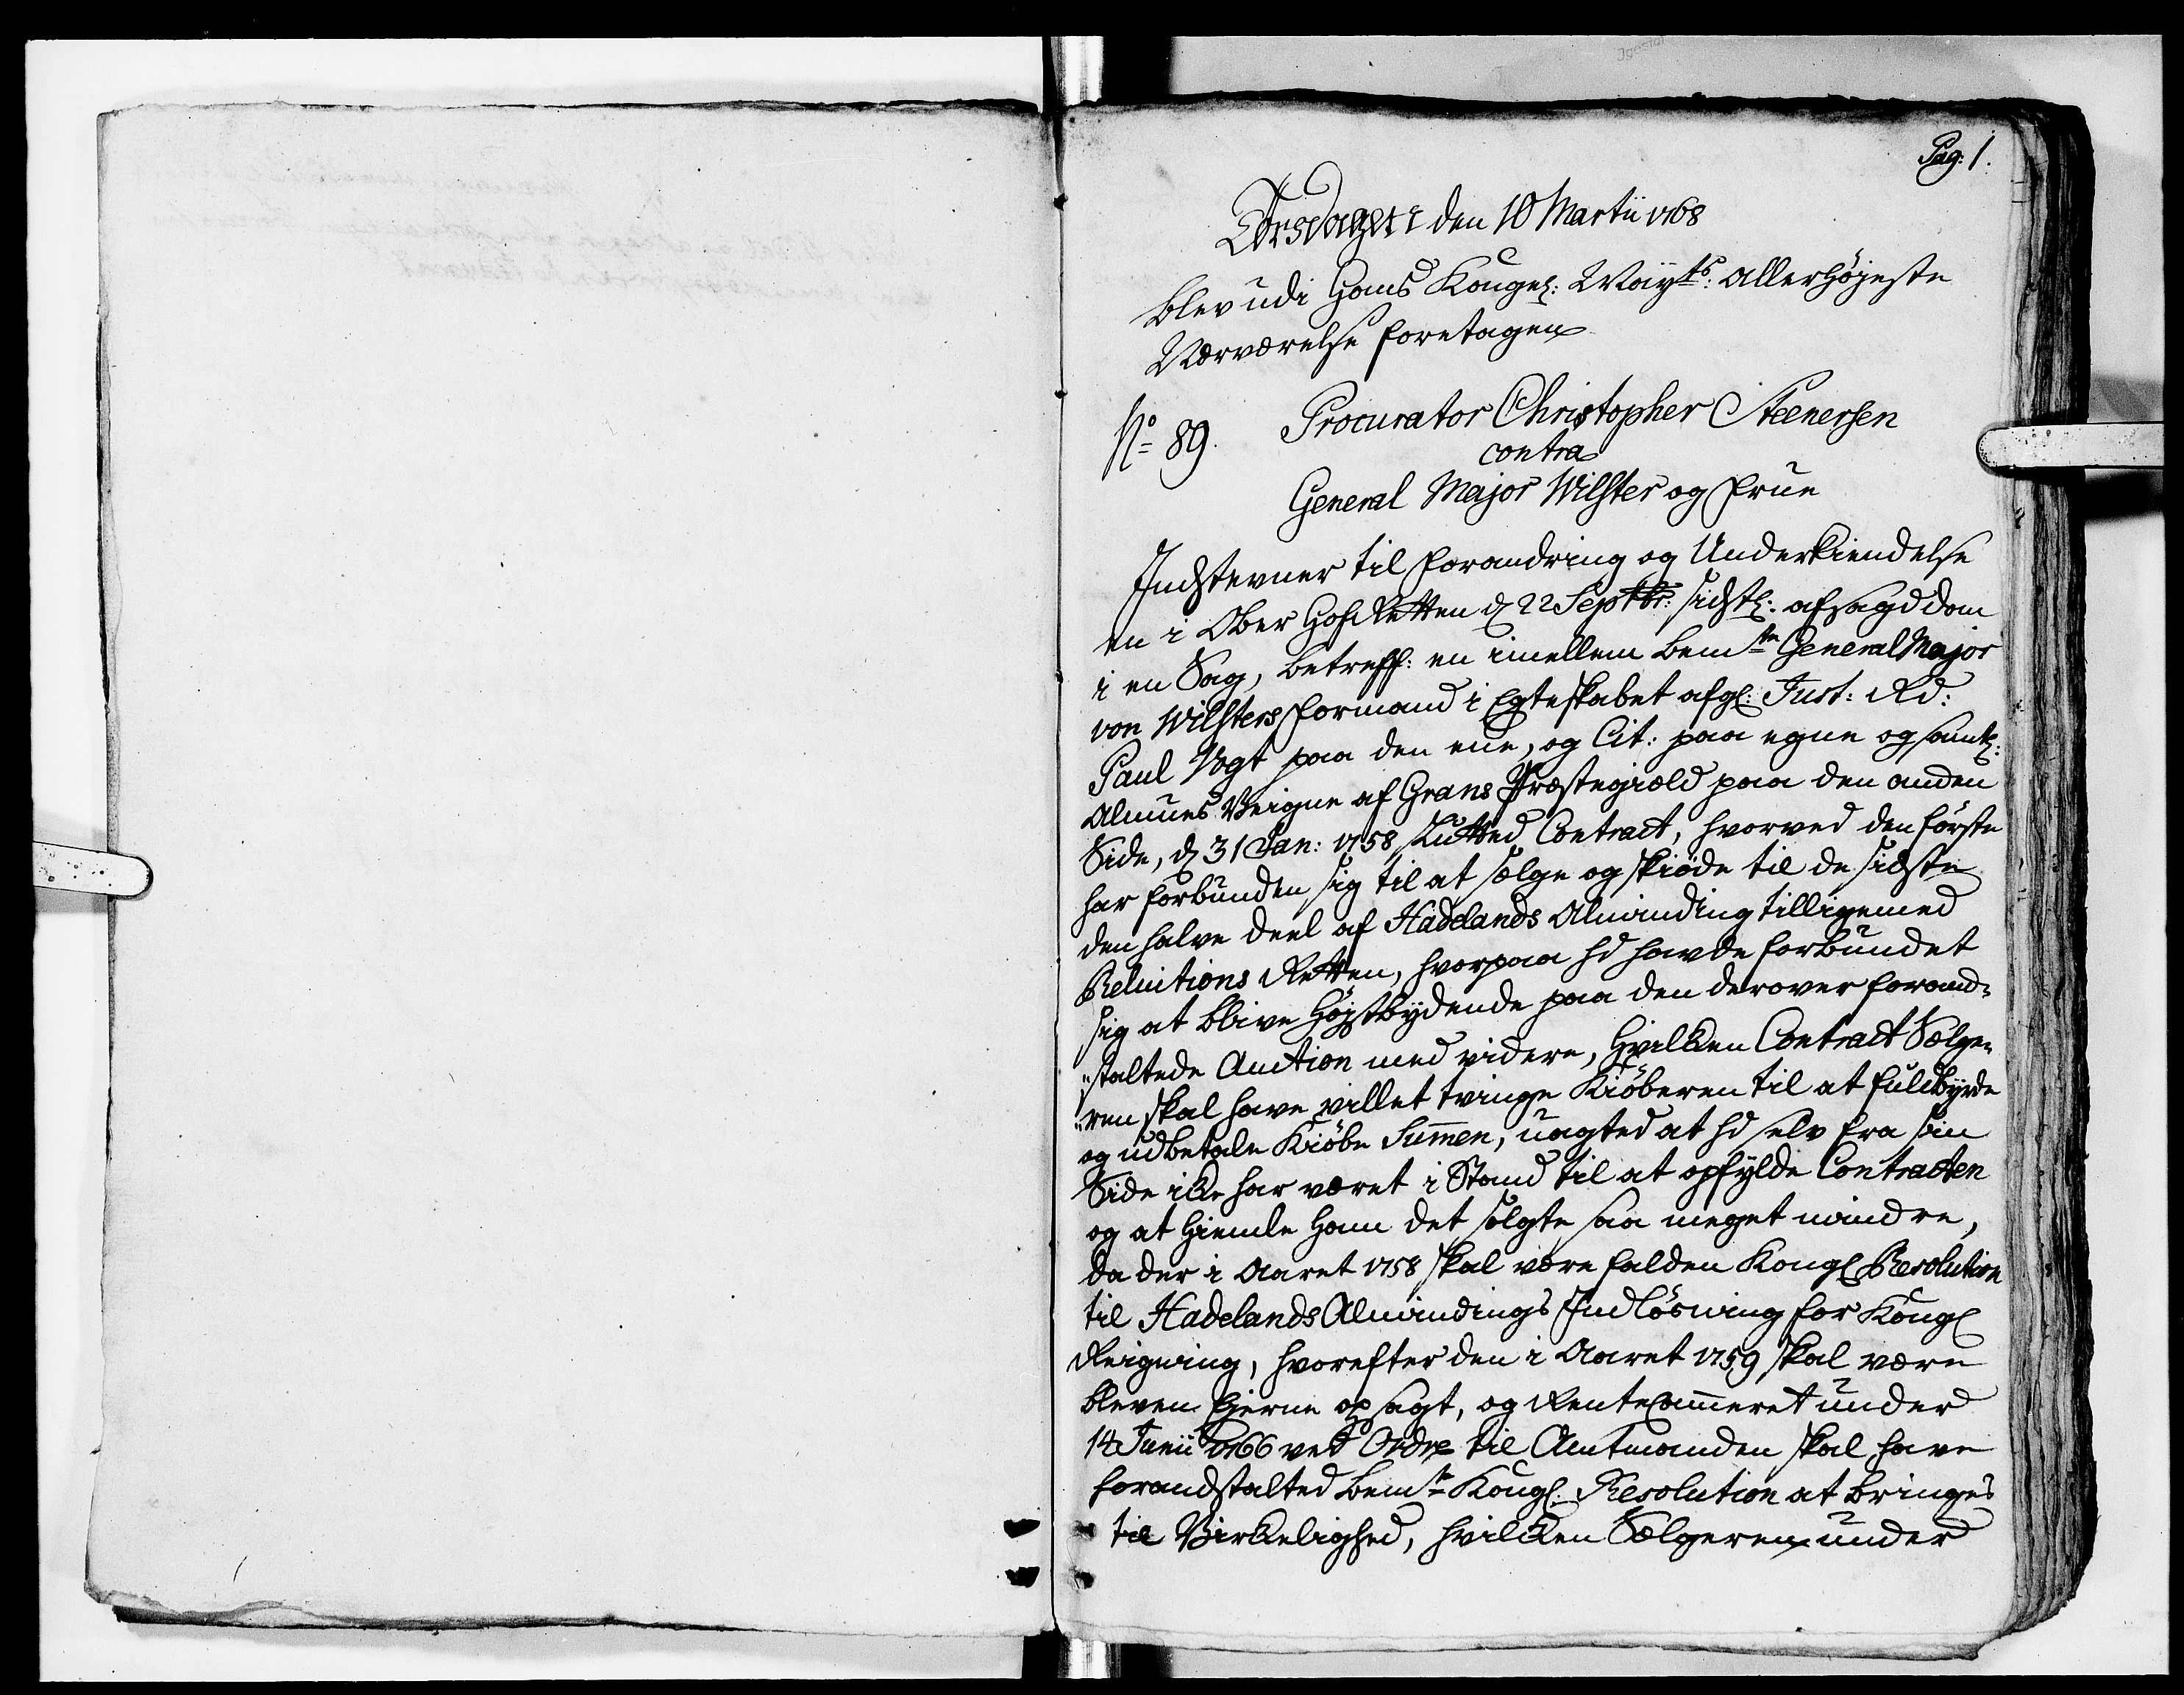 Pag: 1.
Torsdagen den 10 Martii 1768
blev udi Hans Kongel: Mayts: Allerhøjeste
Nærværelse foretagen
No 89. Procurator Christopher Steenersen
contra
General Major Wilster og Frue
Indstevner til Forandring og Underkiendelse
en i Ober Hof Retten d 22 Septbr: sidstl: afsagd dom
i en Sag, betreff: en imellem bemte General Major
von Wilsters Formand i Egteskabet afgl: Just: Rd:
Paul Vogt paa den ene, og Cit: paa egne og samtl:
Almues Veigne af Grans Præstegield paa den anden
Side, d 31 Jan: 1758 slutted Contract, hvorved den første
har forbunden sig til at sælge og skiøde til de sidste
den halve deel af Hadelands Alminding tilligemed
Reluitions Retten, hvorpaa hd havde forbundet
sig at blive Højstbydende paa den derover forand-
staltede Auction med videre, Hvilken Contract Sælge-
ren skal have villet tvinge Kiøberen til at fuldbyrde
og udbetale Kiøbe Summen, uagted at hd selv fra sin
Side ikke har været i Stand til at opfylde Contracten
og at Hiemle ham det solgte saa meget mindre,
da der i Aaret 1758 skal være falden Kongl Resolution
til Hadelands Almindings Indløsning for Kongl
Reigning, hvorefter den i Aaret 1759 skal være
bleven Hjerne opsagt, og Rentecammeret under
14 Junii 1766 ved Ordre til Amtmanden skal have
forandstalted bemte Kongl: Resolution at bringes
til Virkelighed, hvilken Sælgeren under